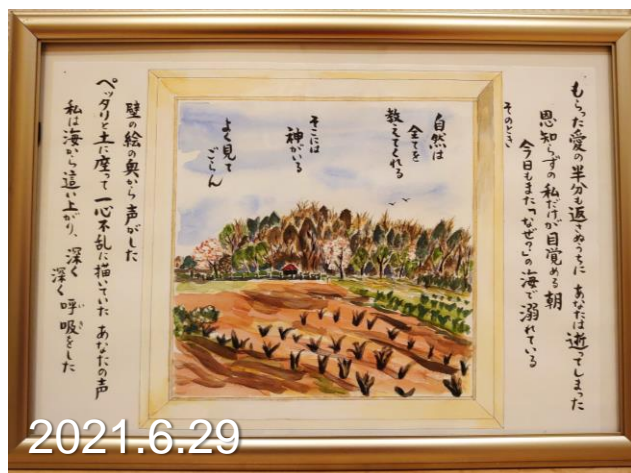 もらった愛の半分も返さぬうちに あなたは逝ってしまった
恩知らずの私だけが目覚める朝
今日もまた「なぜ?」の海で溺れている
そのとき
自然は
全てを
教えてくれる
そこには
神がいる
よく見て
ごらん
壁の絵の奥から声がした
ペッタリと土に座って一心不乱に描いていた あなたの声
私は海から這い上がり、深く
深く呼吸をした
2021.6.29